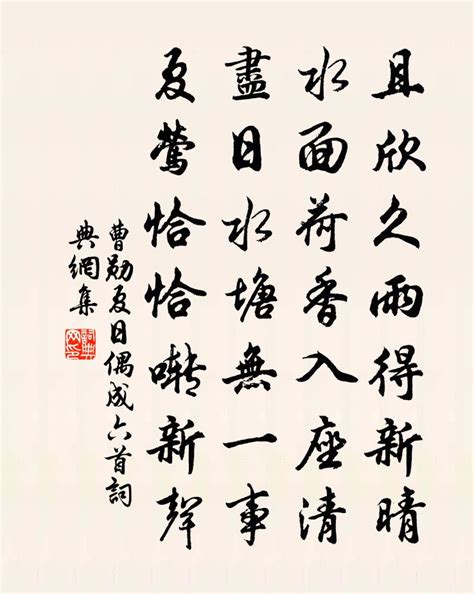 且欣久雨得新晴
水面荷香入座清
盡日水塘無一事
夏鶯恰恰囀新聲
曹勛夏日偶成六首詞
典網集
詞典网印